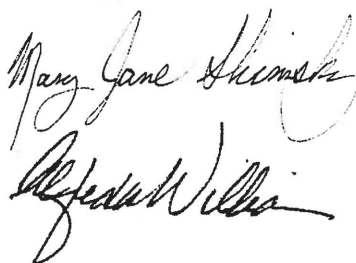 Mary Jane Shimsk
Alfreda Williams